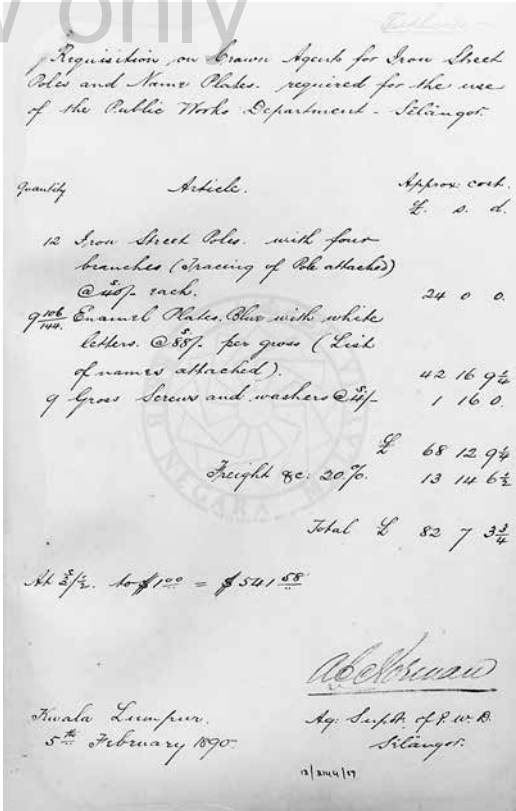 w only
Requisition on Crown Agents for Iron Street
Poles and Name Plates. required for the use
of the Public Works Department - Selangor.
Quantity Article. Approx: cost.
£. s. d.
12 Iron Street Poles. with four
branches (Tracing of Pole attached)
@ 40/- each. 24 0 0.
9 106/144 Enamel Plates. Blue with white
letters. @ 88/- per gross (List
of names attached). 42 16 9 1/4
9 Gross Screws and washers @ 4/- 1 16 0.
£ 68 12 9 1/4
Freight &c: 20%. 13 14 6 1/2
Total £ 82 7 3 3/4
At 3/ 1/2. to $1.00 = $541.58
A C Norman
Kwala Lumpur. Ag: Supdt. of P. W. D.
5th February 1890. Selangor.
NEGARA